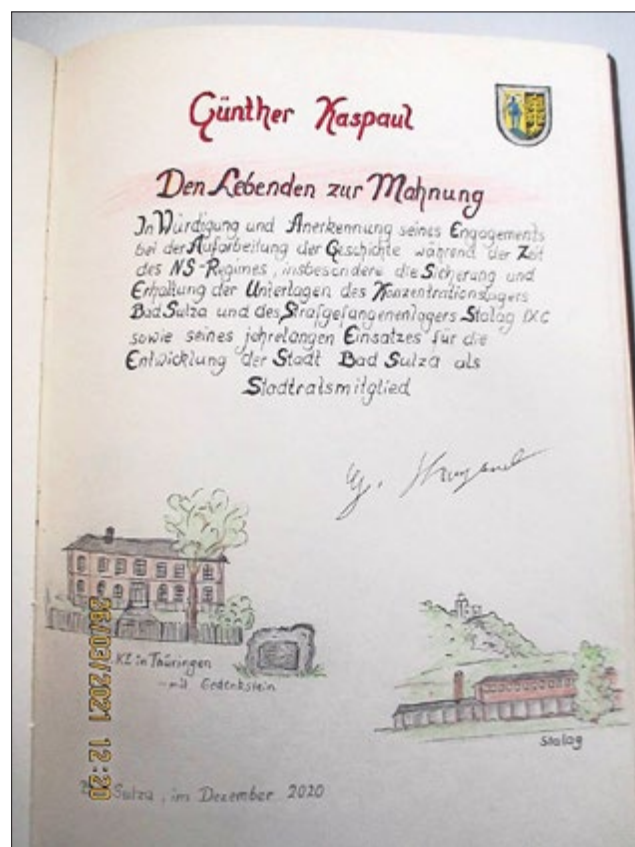 Günther Kaspaul
Den Lebenden zur Mahnung
In Würdigung und Anerkennung seines Engagements
bei der Aufarbeitung der Geschichte während der Zeit
des NS-Regimes, insbesondere die Sicherung und
Erhaltung der Unterlagen des Konzentrationslagers
Bad Sulza und des Strafgefangenenlagers Stalag IX C
sowie seines jahrelangen Einsatzes für die
Entwicklung der Stadt Bad Sulza als
Stadtratsmitglied
KZ in Thüringen
mit Gedenkstein
Stalag
Sulza, im Dezember 2020
26/03/2021 12:20